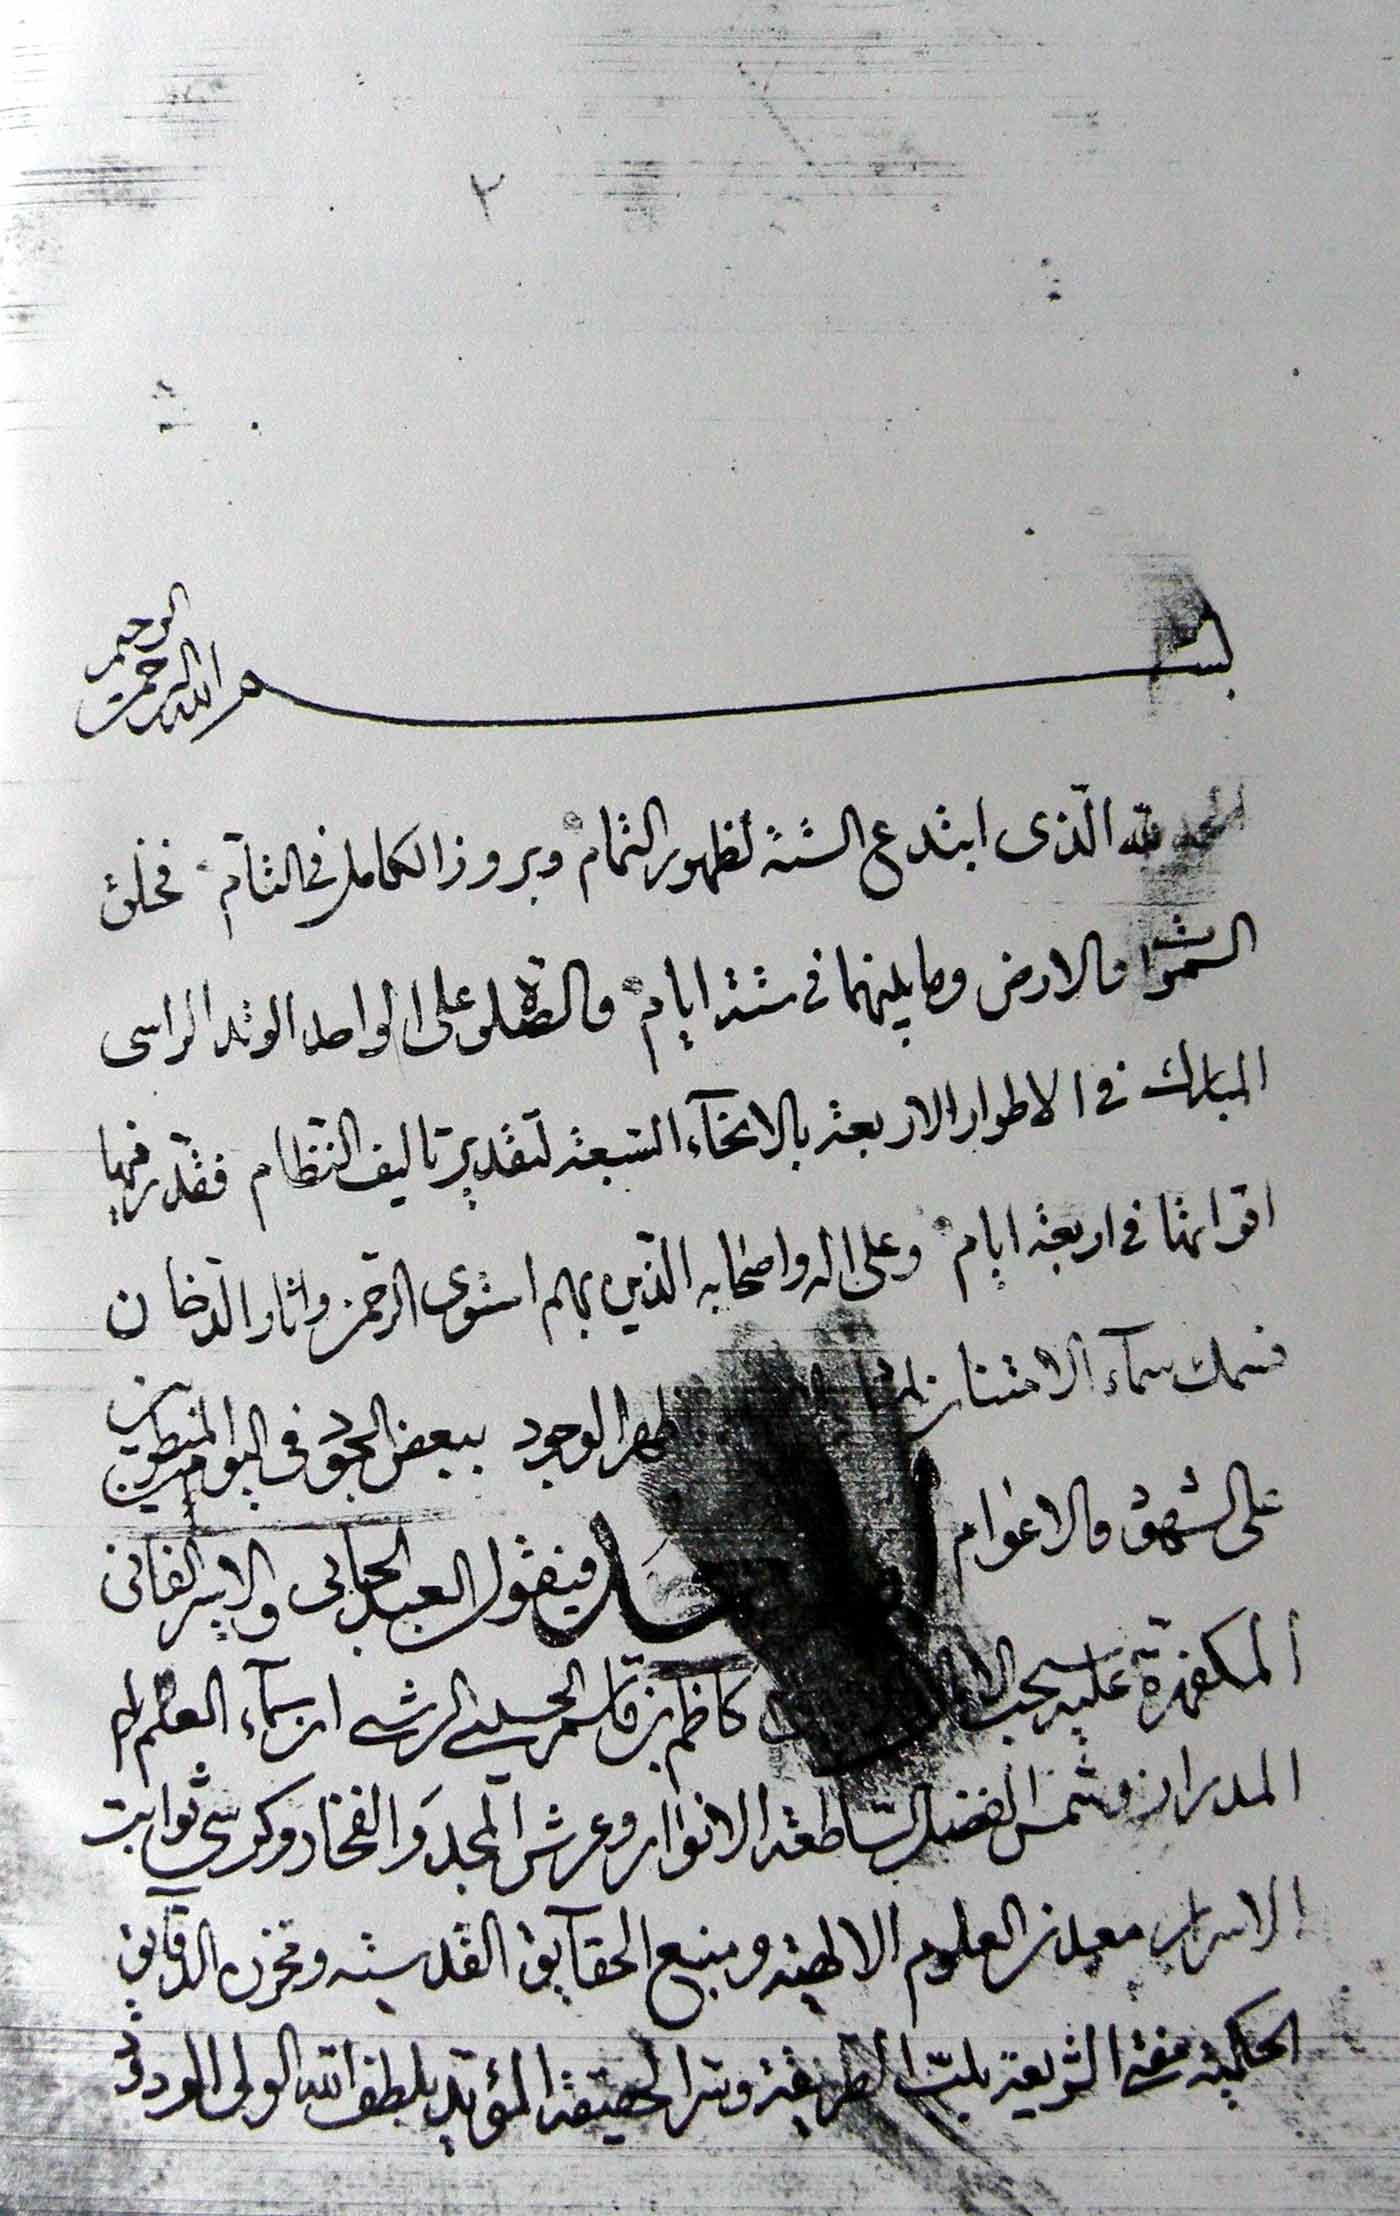 ٢
بسم الله الرحمن الرحيم
الحمد لله الذى ابتدع الستة لظهور التمام وبروز الكامل فى التآم فخلق
السموا والارض وما بينهما فى ستة ايام والصلوة على الواحد الوتد الراسى
المبارك فى الاطوار الاربعة بالانحآء السبعة لتقدير تاليف النظام فقدر فيها
اقواتها فى اربعة ايام وعلى اله واصحابه الذين بهم استوى الرحمن واثار الدخان
فسمك سمآء الامتنان ظهر الوجود ببعض الجود فى اليومين المنطويين
على الشهور والاعوام فيقول العبد الجانى والاسير الفانى
المكفهرة عليه سحب كاظم بن قاسم الحسينى الرشتى ان سمآء العلم
المدرار وشمس الفضل الساطعة الانوار وعرش المجد والفخار وكرسى ثوابت
الاسرار معدن العلوم الالهية ومنبع الحقآيق القدسية ومخزن الدقآيق
الحكمية مفتى الشريعة الطريقة وسر الحقيقة المؤيد بلطف الله الولى الودود